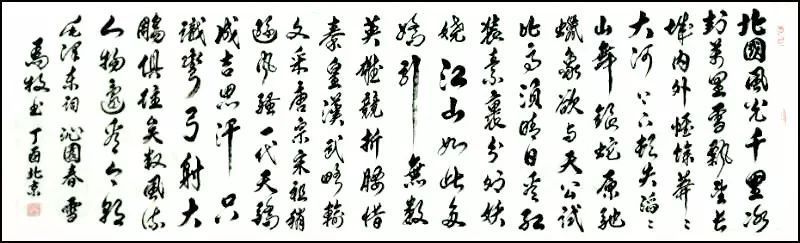 北國風光千里冰
封萬里雪飄望長
城内外惟餘莽〻
大河上下頓失滔〻
山舞銀蛇原馳
蠟象欲与天公試
比高須晴日看紅
裝素裹分外妖
嬈江山如此多
嬌引無數
英雄競折腰惜
秦皇漢武略輸
文采唐宗宋祖稍
遜風騷一代天驕
成吉思汗只
識彎弓射大
鵰俱往矣數風流
人物還看今朝
毛澤东詞沁園春雪
馬牧書丁酉北京